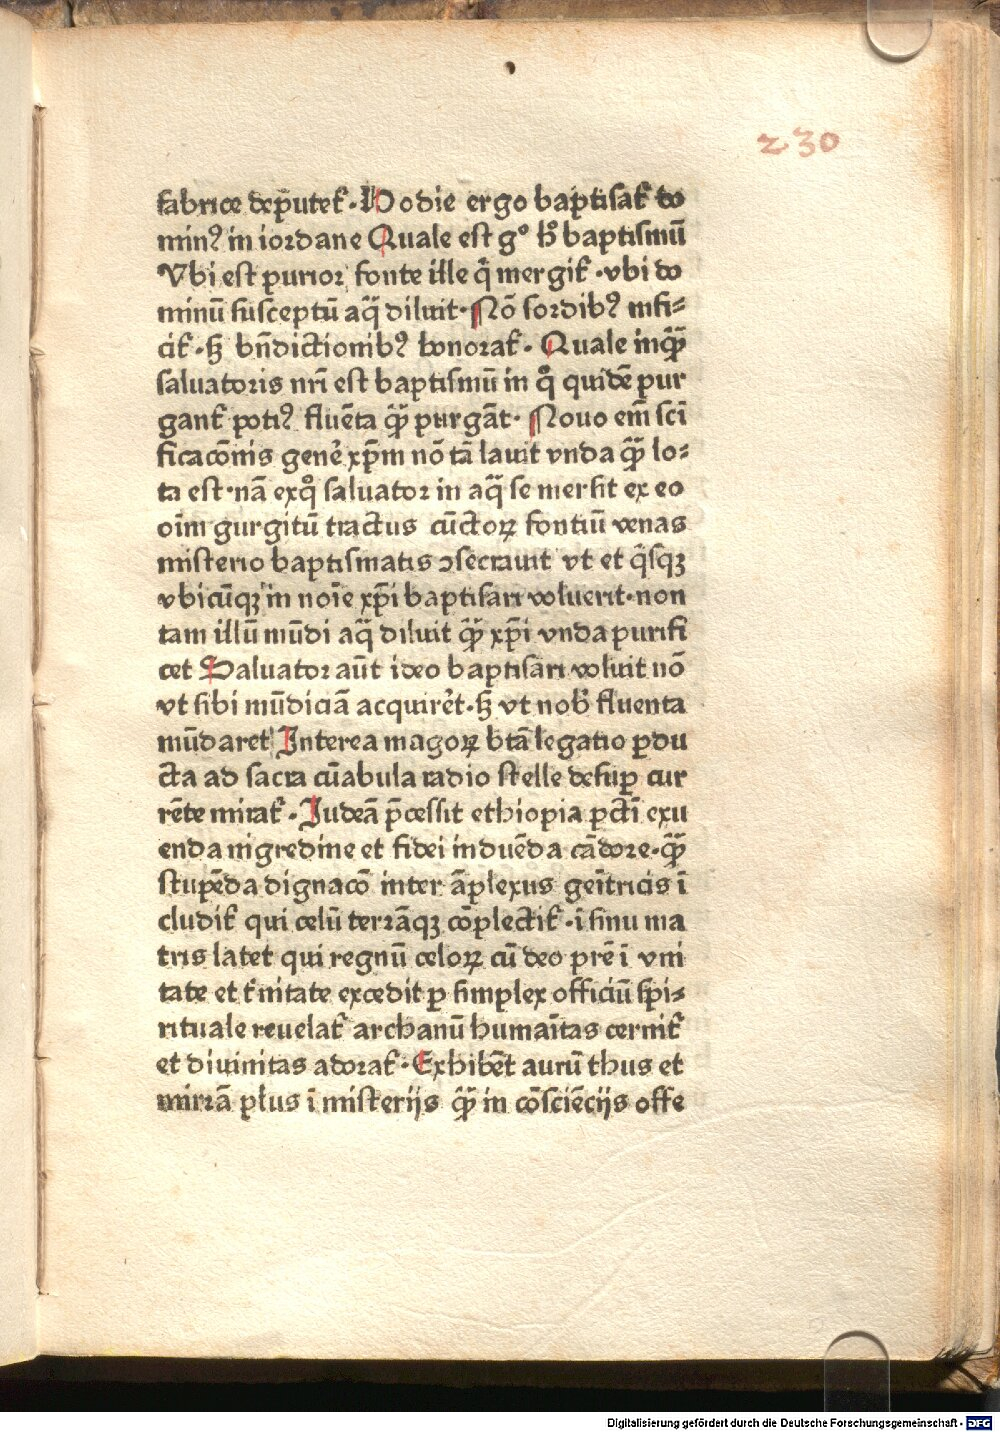 230
fabrice dep̄utet᷑. Hodie ergo baptisat᷑ do
minꝰ in iordane Quale est g° h̄ baptismū
Vbi est purior fonte ille q̄ mergit᷑. vbi do
minū susceptū aq̄ diluit. Nō sordibꝰ infi-
cit᷑. sꝫ bn̄dictionibꝰ honorat᷑. Quale inqͣ̄
saluatoris nr̄i est baptismū in qͦ quidē pur
gant᷑ potiꝰ fluēta qͣ̄ purgāt. Nouo em̄ sci
ficacōnis genē xp̄m nō tā lauit vnda qͣ̄ lo-
ta est. nā exqͦ saluator in aq̄ se mersit ex eo
oīm gurgitū tractus cūctoꝝ fontiū venas
misterio baptismatis ↄsecrauit vt et q̄sqꝫ
vbicūqꝫ in noīe xp̄i baptisari voluerit. non
tam illū mūdi aq̄ diluit qͣ̄ xp̄i vnda purifi
cet Saluator aūt ideo baptisari voluit nō
vt sibi mūdiciā acquirēt. sꝫ vt nob̄ fluenta
mūdaret Interea magoꝝ btā legatio ꝑdu
cta ad sacra cūabula radio stelle desuꝑ cur
rēte mirat᷑. Iudeā p̄cessit ethiopia ꝑctī exu
enda nigredine et fidei induēda cādore. qͣ̄
stupēda dignacō inter āplexus geītricis ī
cludit᷑ qui celū terrāqꝫ cōplectit᷑. ī sinu ma
tris latet qui regnū celoꝝ cū deo prē ī vni
tate et t᷑nitate excedit ꝑ simplex officiū spi-
rituale reuelat᷑ archanū humaītas cernit᷑
et diuinitas adorat᷑. Exhibēt aurū thus et
mirrā płus ī misterijs qͣ̄ in cōsciēcijs offe
Digitalisierung gefördert durch die Deutsche Forschungsgemeinschaft - DFG